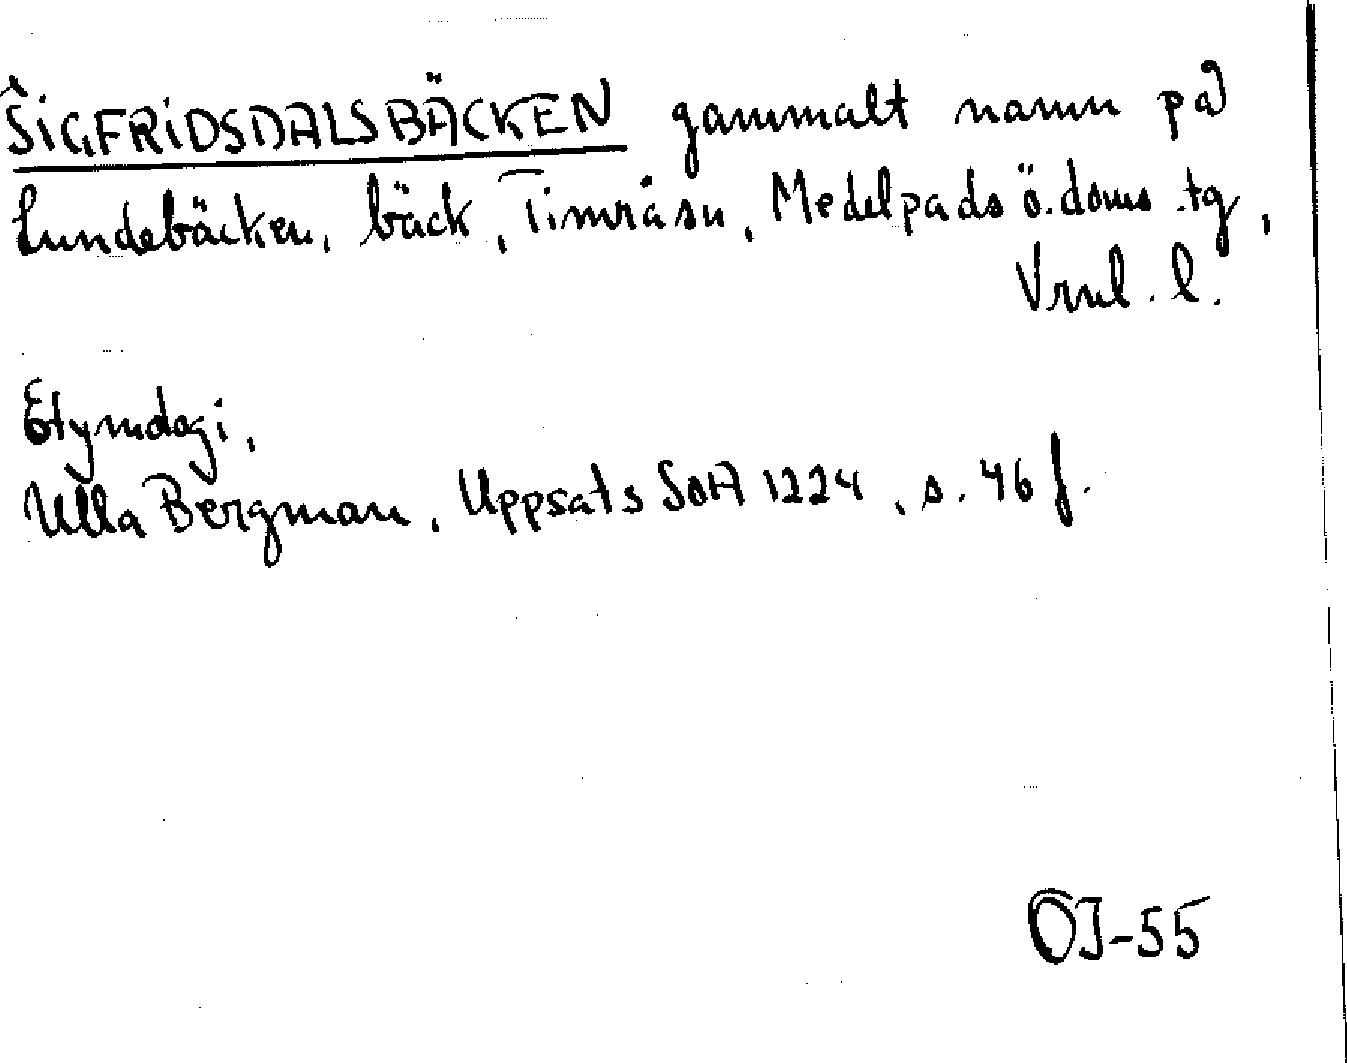 SIGFRIDSDALSBÄCKEN gammalt namn på
Lundebäcken, bäck, Timrå sn, Medelpads ö. doms.tg,
Vrnl. l.
Etymologi,
Ulla Bergman, Uppsats SOA 1224, s. 46 f.
OJ-55